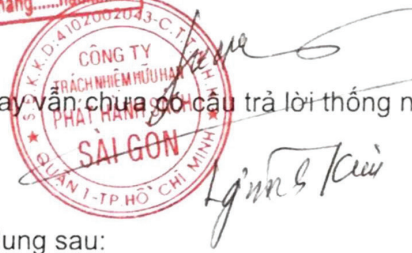 S.Đ.K.K.D:4102002043-C.T.T.N.H.H
CÔNG TY
TRÁCH NHIỆM HỮU HẠN
PHÁT HÀNH SÁCH
SÀI GÒN
QUẬN 1-TP.HỒ CHÍ MINH
ay vẫn chưa có câu trả lời thống n
ung sau: